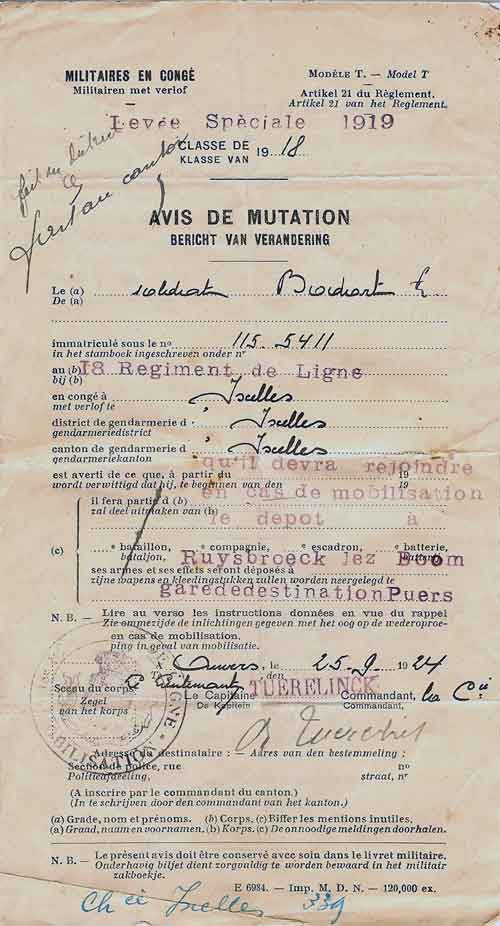 MILITAIRES EN CONGÉ
Militairen met verlof
MODÈLE T. — Model T
Artikel 21 du Règlement.
Artikel 21 van het Reglement.
Levée Spèciale 1919
CLASSE DE
KLASSE VAN 1918
AVIS DE MUTATION
BERICHT VAN VERANDERING
Le (a)
De (a) soldat
immatriculé sous le nº 115-5411
in het stamboek ingeschreven onder nr
au (b) 18 Regiment de Ligne
bij (b)
en congé à Ixelles
met verlof te
district de gendarmerie d' Ixelles
gendarmeriedistrict
canton de gendarmerie d' Ixelles
gendarmeriekanton
qu'il devra rejoindre
est averti de ce que, à partir du 19
wordt verwittigd dat hij, te beginnen van den 19
en cas de mobilisation
il fera partir d (b)
zal deel uitmaken van (b)
le depot à
(c) bataillon, compagnie, escadron, batterie,
bataljon,
Ruysbroeck lez Boom
ses armes et ses effets seront déposés à
zijne wapens en kleedingstukken zullen worden neergelegd te
garededestination Puers
N. B. — Lire au verso les instructions données en vue du rappel
Zie ommezijde de inlichtingen gegeven met het oog op de wederoproe-
en cas de mobilisation.
ping in geval van mobilisatie.
A Anvers, le 25-9 1924
Te den
Sceau du corps
Zegel
van het korps
Lieutenant TUERELINCK
Le Capitaine Commandant, la Cie
De Kapitein Commandant,
Adresse du destinataire : — Adres van den bestemmeling :
Section de police, rue nº
Politieafdeeling, straat, nº
(A inscrire par le commandant du canton.)
(In te schrijven door den commandant van het kanton.)
(a) Grade, nom et prénoms. (b) Corps. (c) Biffer les mentions inutiles.
(a) Graad, naam en voornamen. (b) Korps. (c) De onnoodige meldingen doorhalen.
N. B. — Le présent avis doit être conservé avec soin dans le livret militaire.
Onderhavig biljet dient zorgvuldig te worden bewaard in het militair
zakboekje.
E 6984. — Imp. M. D. N. — 120,000 ex.
Ixelles 339